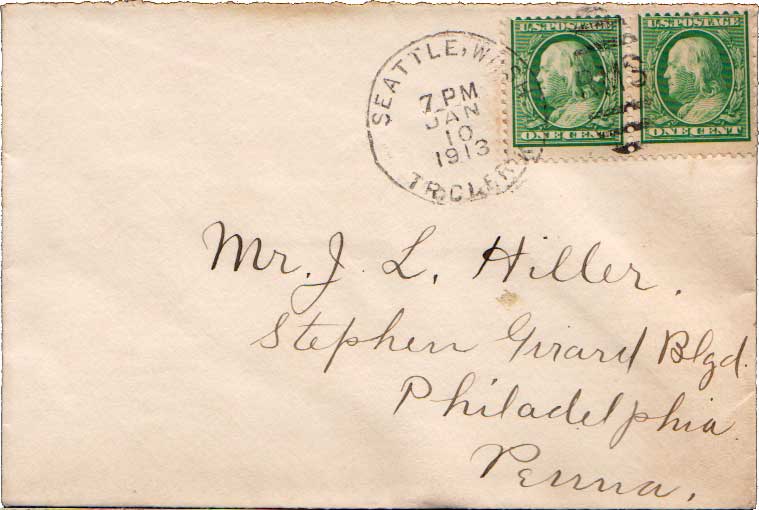 U.S. POSTAGE
ONE CENT
U.S. POSTAGE
ONE CENT
SEATTLE, WASH.
7 PM
JAN
10
1913
TR. CLERK
Mr. J. L. Hiller.
Stephen Girard Blgd.
Philadelphia
Penna.